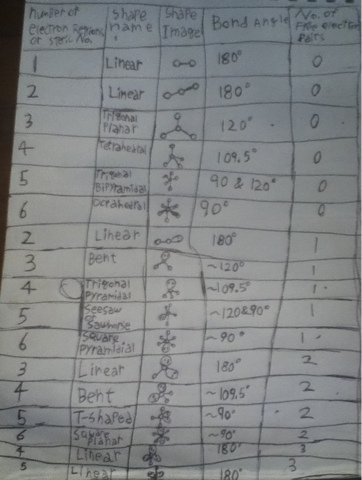 Number of
electron Regions
or steric No.
Shape
name
Shape
Image
Bond Angle
No. of
Free electron
Pairs
1 Linear 180° 0
2 Linear 180° 0
3 Trigonal
Planar 120° 0
4 Tetrahedral 109.5° 0
5 Trigonal
Bipyramidal 90 & 120° 0
6 Octahedral 90° 0
2 Linear 180° 1
3 Bent ~120° 1
4 Trigonal
Pyramidal ~109.5° 1
5 Seesaw
or
Sawhorse ~120&90° 1
6 Square
Pyramidial ~90° 1
3 Linear 180° 2
4 Bent ~109.5° 2
5 T-shaped ~90° 2
6 Square
Planar ~90° 2
4 Linear 180° 3
5 Linear 180° 3